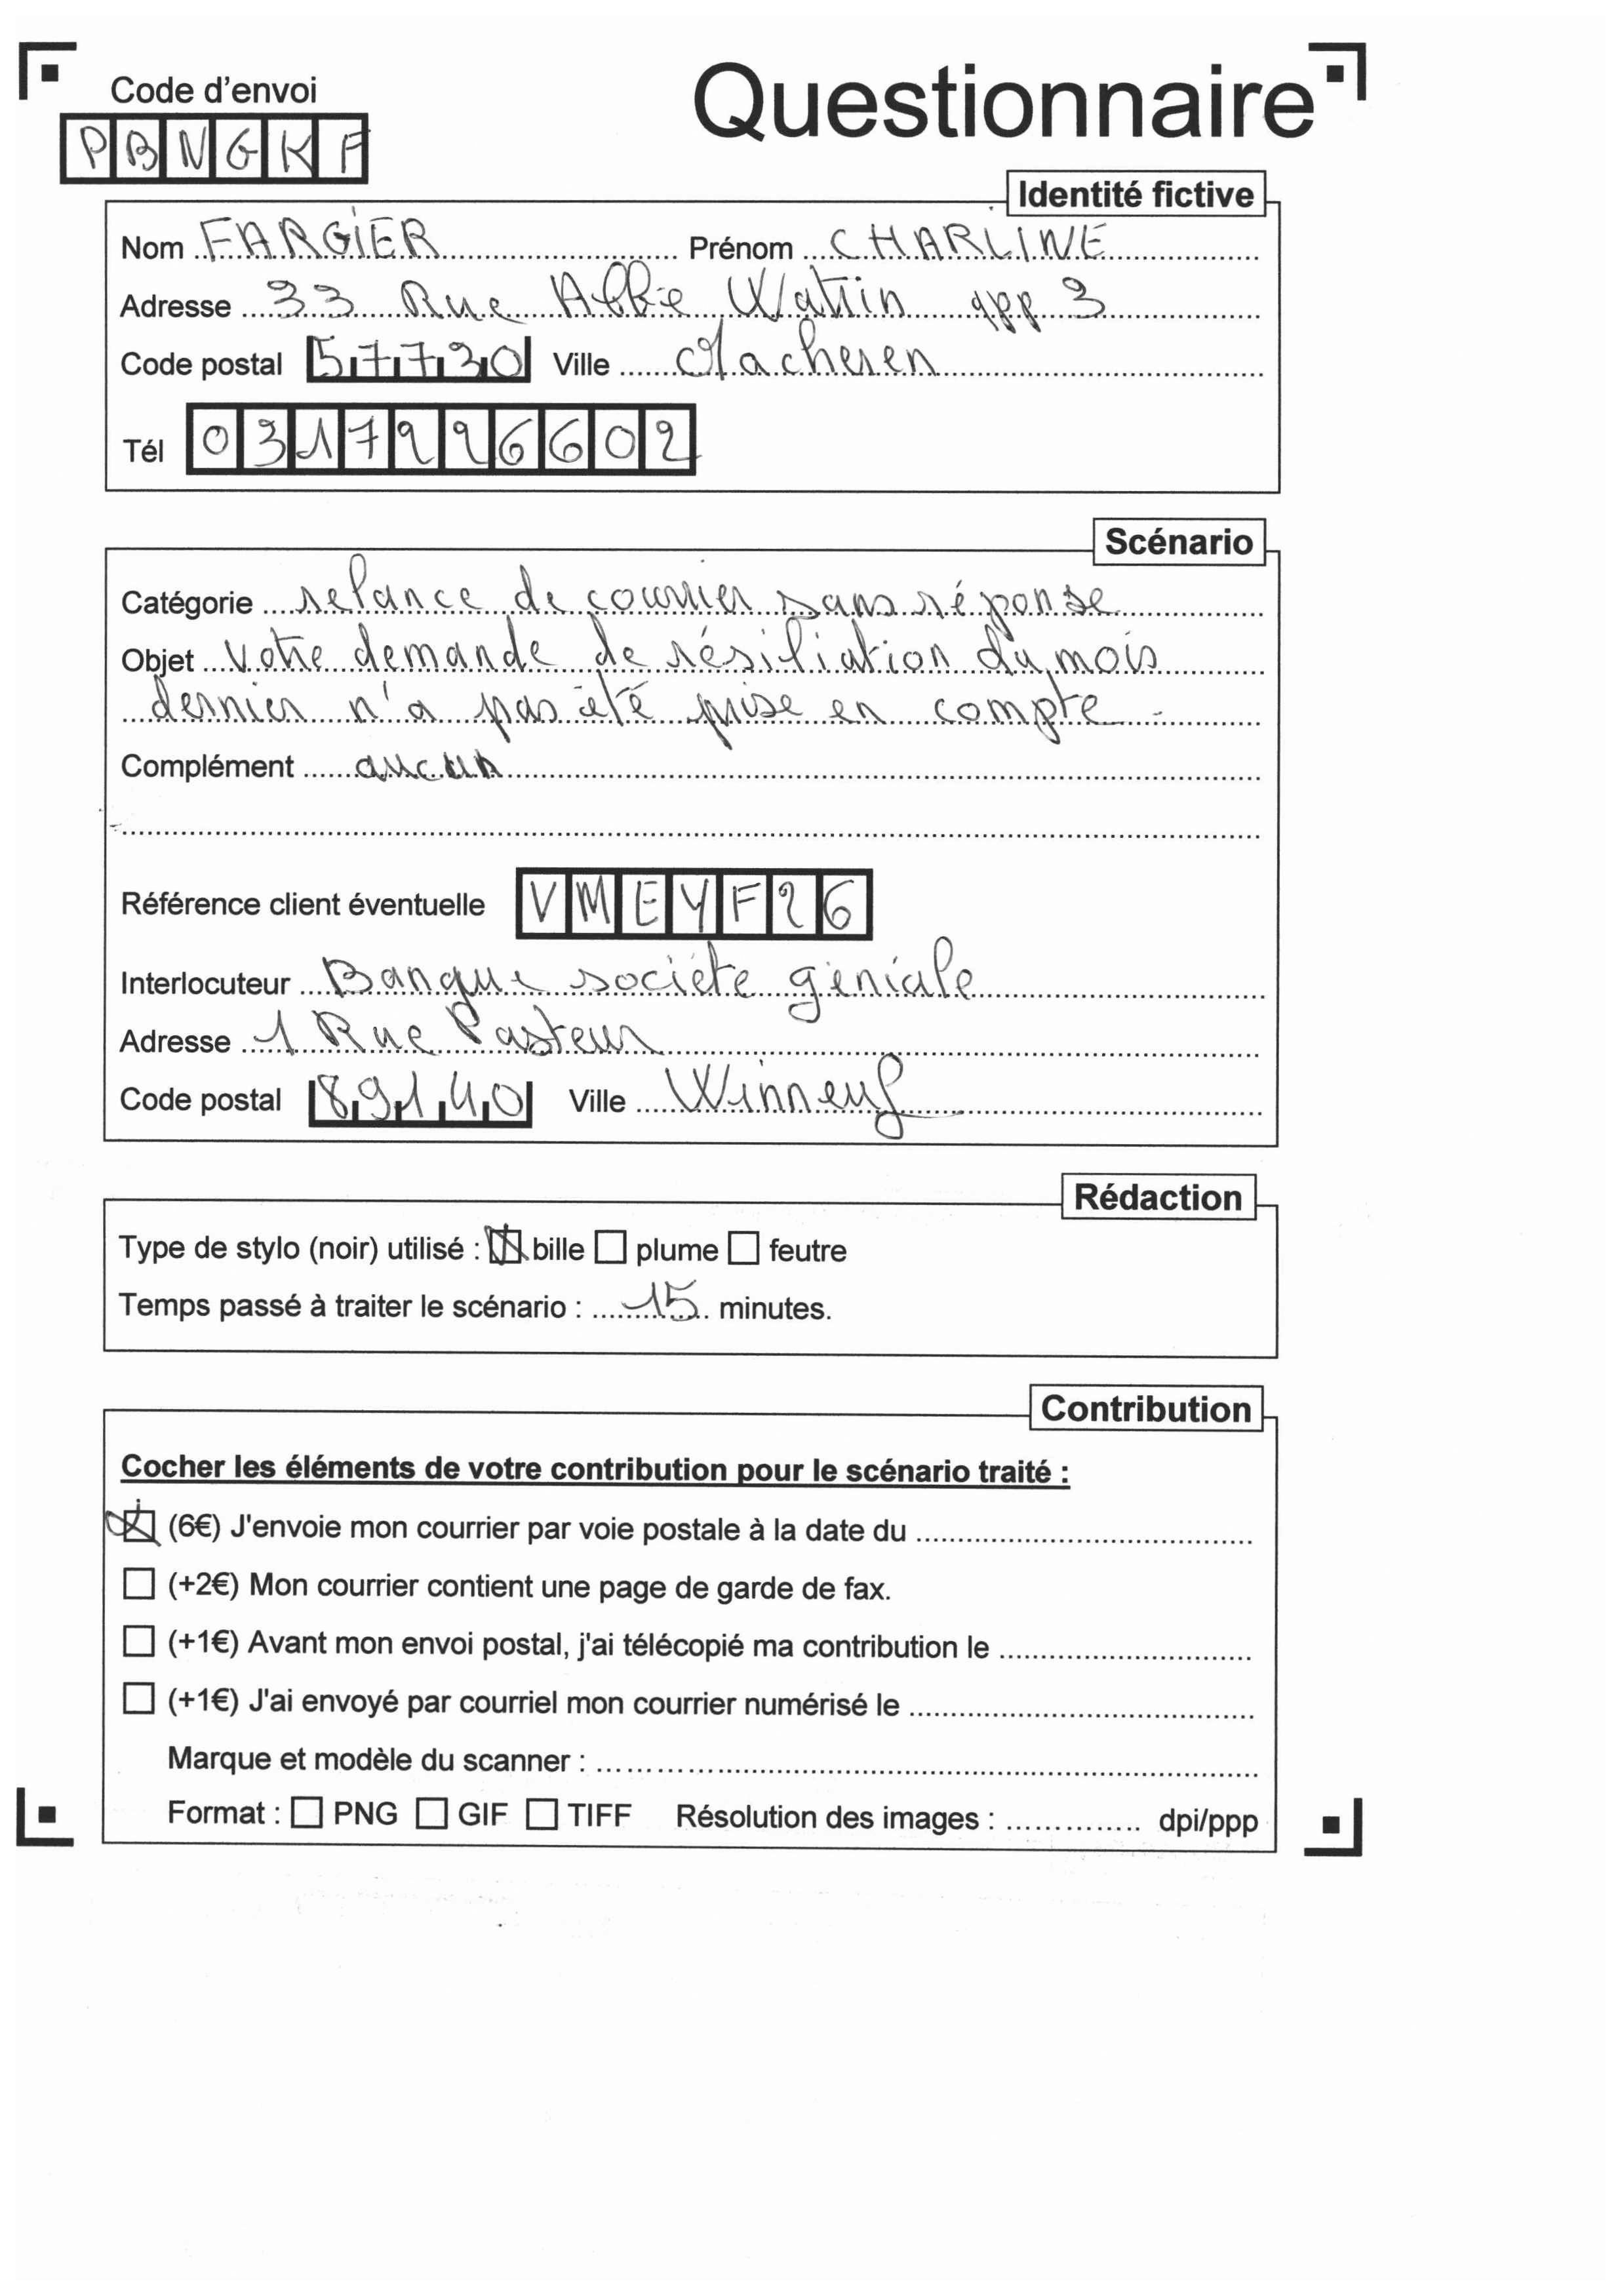 Code d'envoi
Questionnaire
PBNGKF
Identité fictive
Nom FARGIER Prénom CHARLINE
Adresse 33 Rue Abbé Watrin app 3
Code postal 57730 Ville Macheren
Tél 0317996602
Scénario
Catégorie relance de courrier sans réponse
Objet Votre demande de résiliation du mois
dernier n'a pas été prise en compte.
Complément aucun
Référence client éventuelle VMEYF26
Interlocuteur Banque société géniale
Adresse 1 Rue Pasteur
Code postal 89140 Ville Winneuf
Rédaction
Type de stylo (noir) utilisé : bille plume feutre
Temps passé à traiter le scénario : 15 minutes.
Contribution
Cocher les éléments de votre contribution pour le scénario traité :
(6€) J'envoie mon courrier par voie postale à la date du
(+2€) Mon courrier contient une page de garde de fax.
(+1€) Avant mon envoi postal, j'ai télécopié ma contribution le
(+1€) J'ai envoyé par courriel mon courrier numérisé le
Marque et modèle du scanner :
Format : PNG GIF TIFF Résolution des images : dpi/ppp